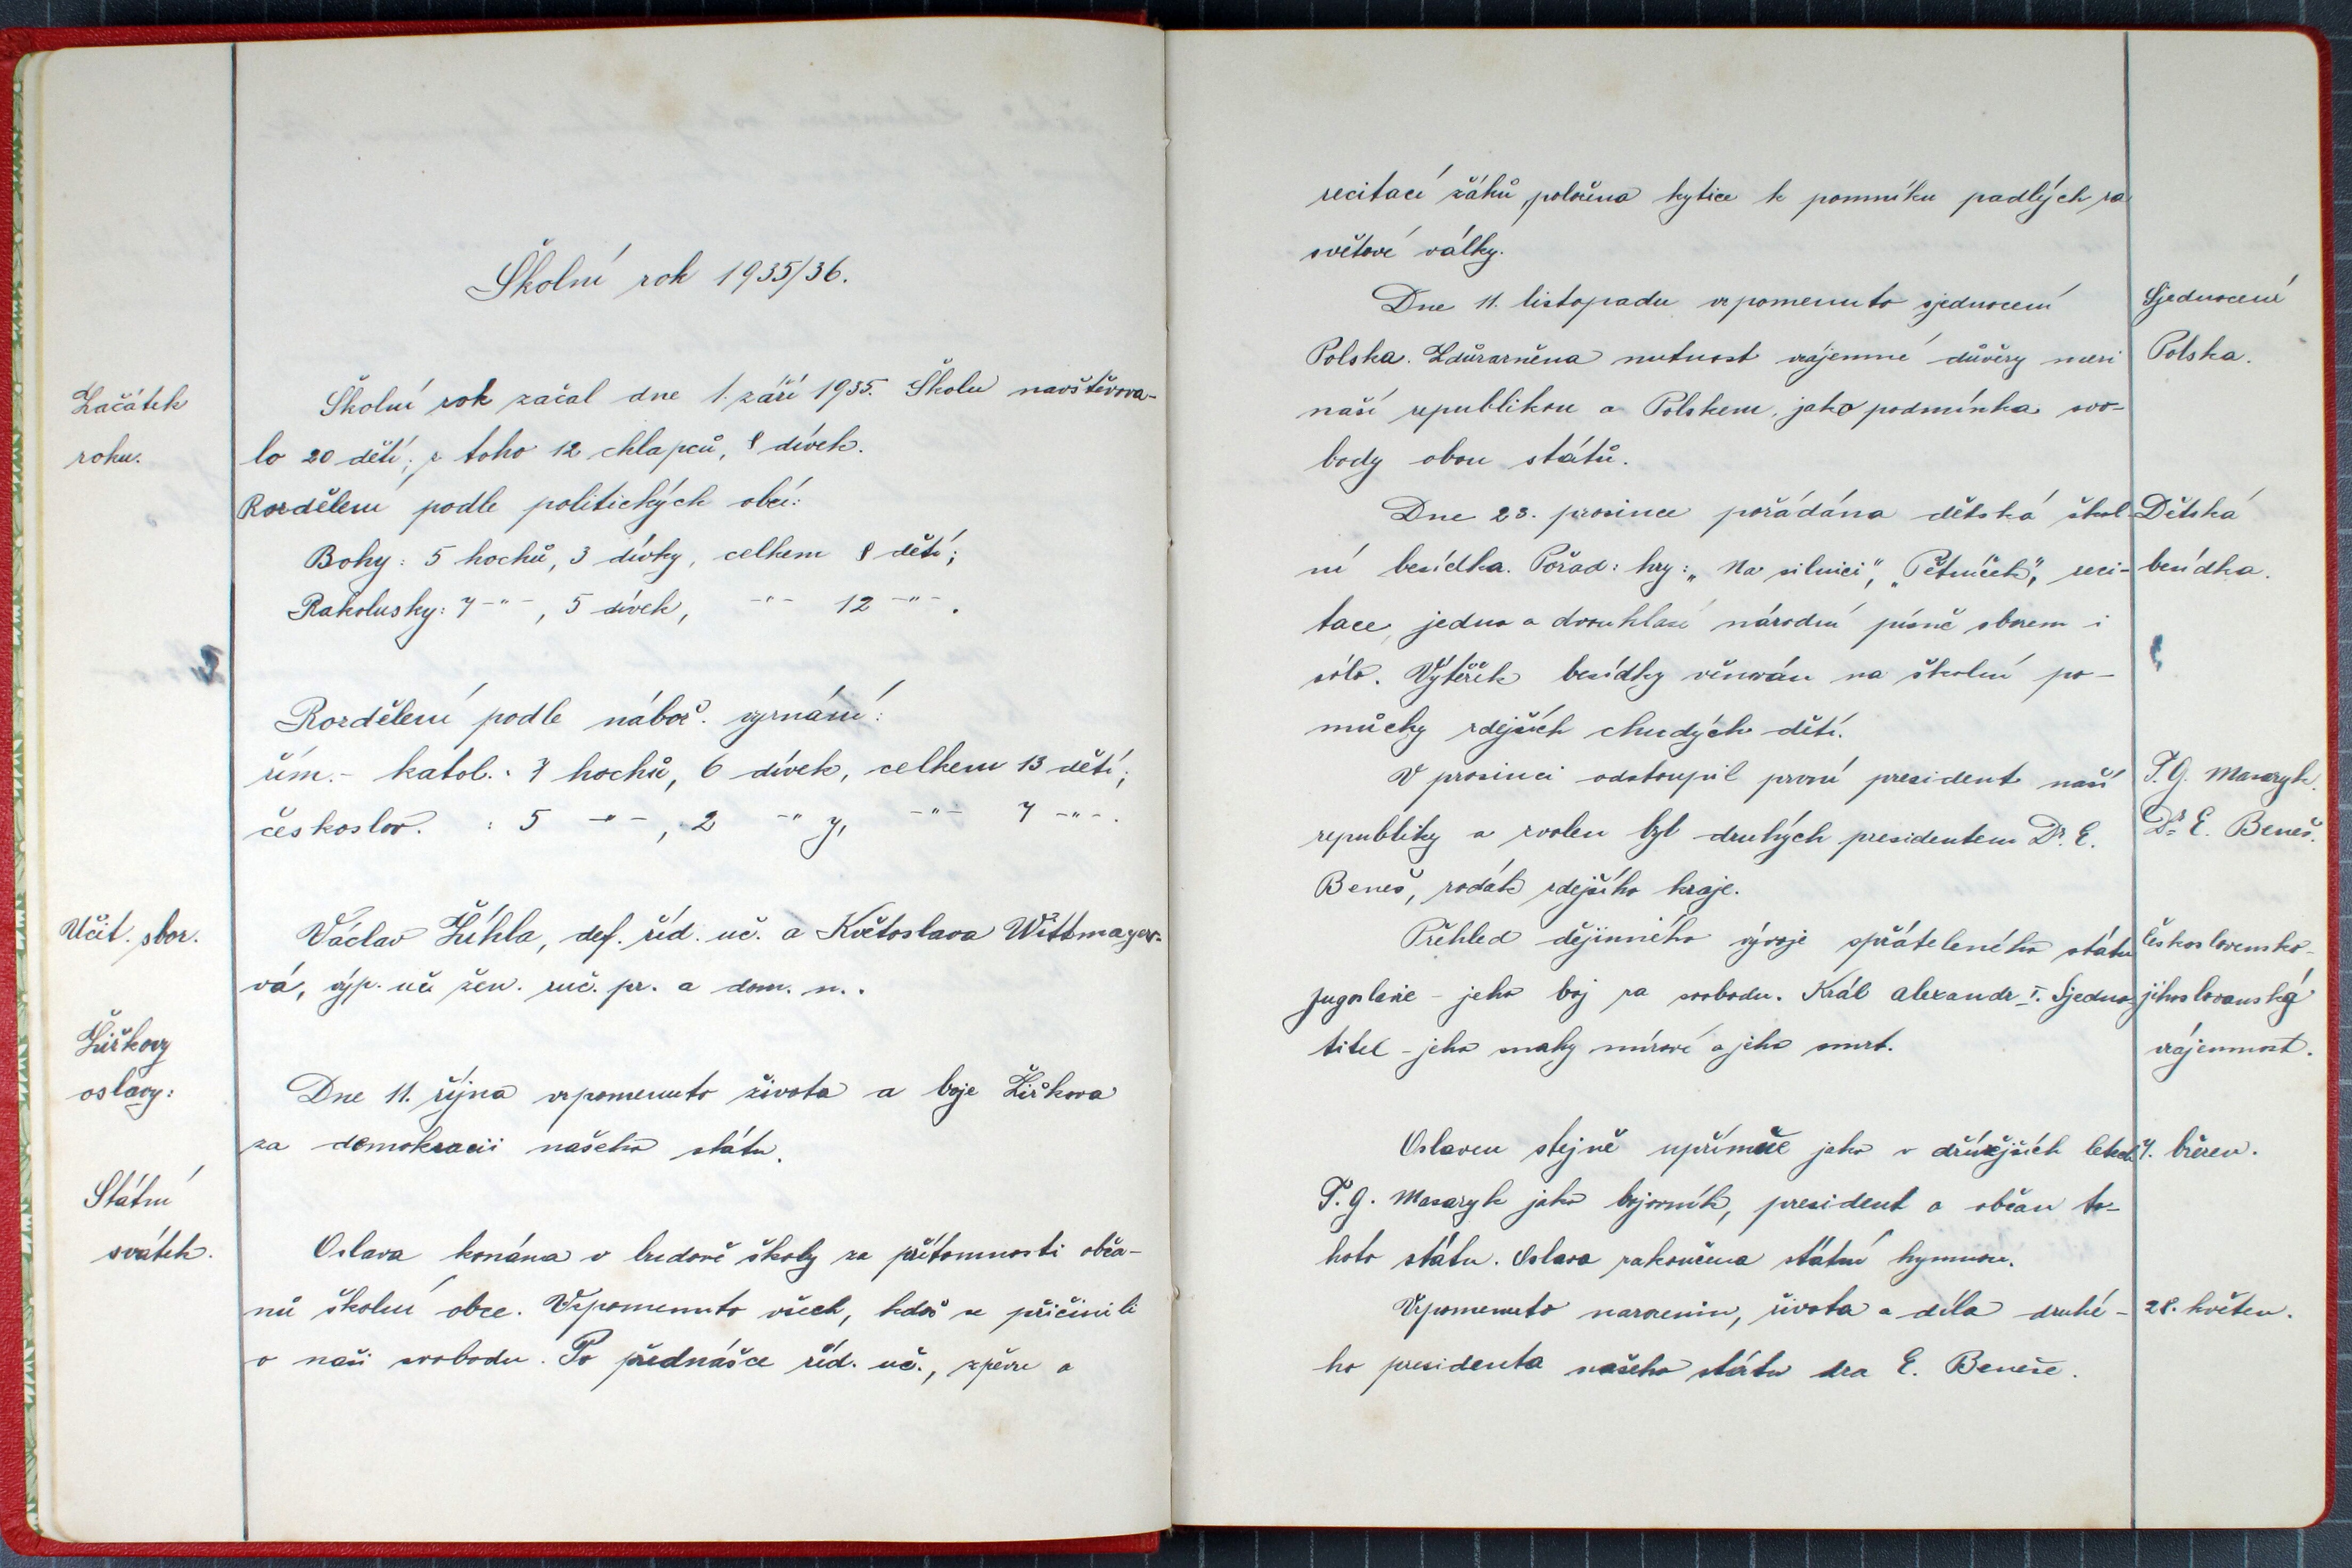 Školní rok 1935/36.
Začátek
roku.
Školní rok začal dne 1. září 1935. Školu navštěvova-
lo 20 dětí; z toho 12 chlapců, 8 dívek.
Rozdělení podle politických obcí:
Bohy: 5 hochů, 3 dívky, celkem 8 dětí;
Rakolusky: 7 -"-, 5 dívek, -"- 12 -"-.
Rozdělení podle nábož. vyznání:
řím.- katol.: 7 hochů, 6 dívek, celkem 13 dětí;
českoslov. : 5 -"-, 2 -"y, -"- 7 -"-.
Učit. sbor.
Václav Žíhla, def. říd. uč. a Květoslava Wittmayero-
vá, výp. uč žen. ruč. pr. a dom. n..
Žižkovy
oslavy:
Dne 11. října vzpomenuto života a boje Žižkova
za demokracii našeho státu.
Státní
svátek.
Oslava konána v budově školy za přítomnosti obča-
nů školní obce. Vzpomenuto všech, kdož se přičinili
o naši svobodu. Po přednášce říd. uč., zpěvu a
recitací žáků, položena kytice k pomníku padlých za
světové války.
Dne 11. listopadu vzpomenuto sjednocení
Polska. Zdůrazněna nutnost vzájemné důvěry mezi
naší republikou a Polskem, jako podmínka svo-
body obou států.
Sjednocení
Polska.
Dne 23. prosince pořádána dětská škol-
ní besídka. Pořad: hry: „Na silnici", „Pětníček", reci-
tace, jedno a dvouhlasé národní písně sborem i
sólo. Výtěžek besídky věnován na školní po-
můcky zdejších chudých dětí.
Dětská
besídka.
V prosinci odstoupil první president naší
republiky a zvolen byl druhých presidentem Dr. E.
Beneš, rodák zdejšího kraje.
T. G. Masaryk.
Dr. E. Beneš.
Přehled dějinného vývoje spřáteleného státu
Jugoslavie - jeho boj za svobodu. Král Alexandr I. Sjedno-
titel - jeho snahy mírové a jeho smrt.
Československo-
jihoslovanská
vzájemnost.
Oslaven stejně upřímně jako v dřívějších letech
T. G. Masaryk jako bojovník, president a občan to-
hoto státu. Oslava zakončena státní hymnou.
7. březen.
Vzpomenuto narozenin, života a díla druhé-
ho presidenta našeho státu dra E. Beneše.
28. květen.